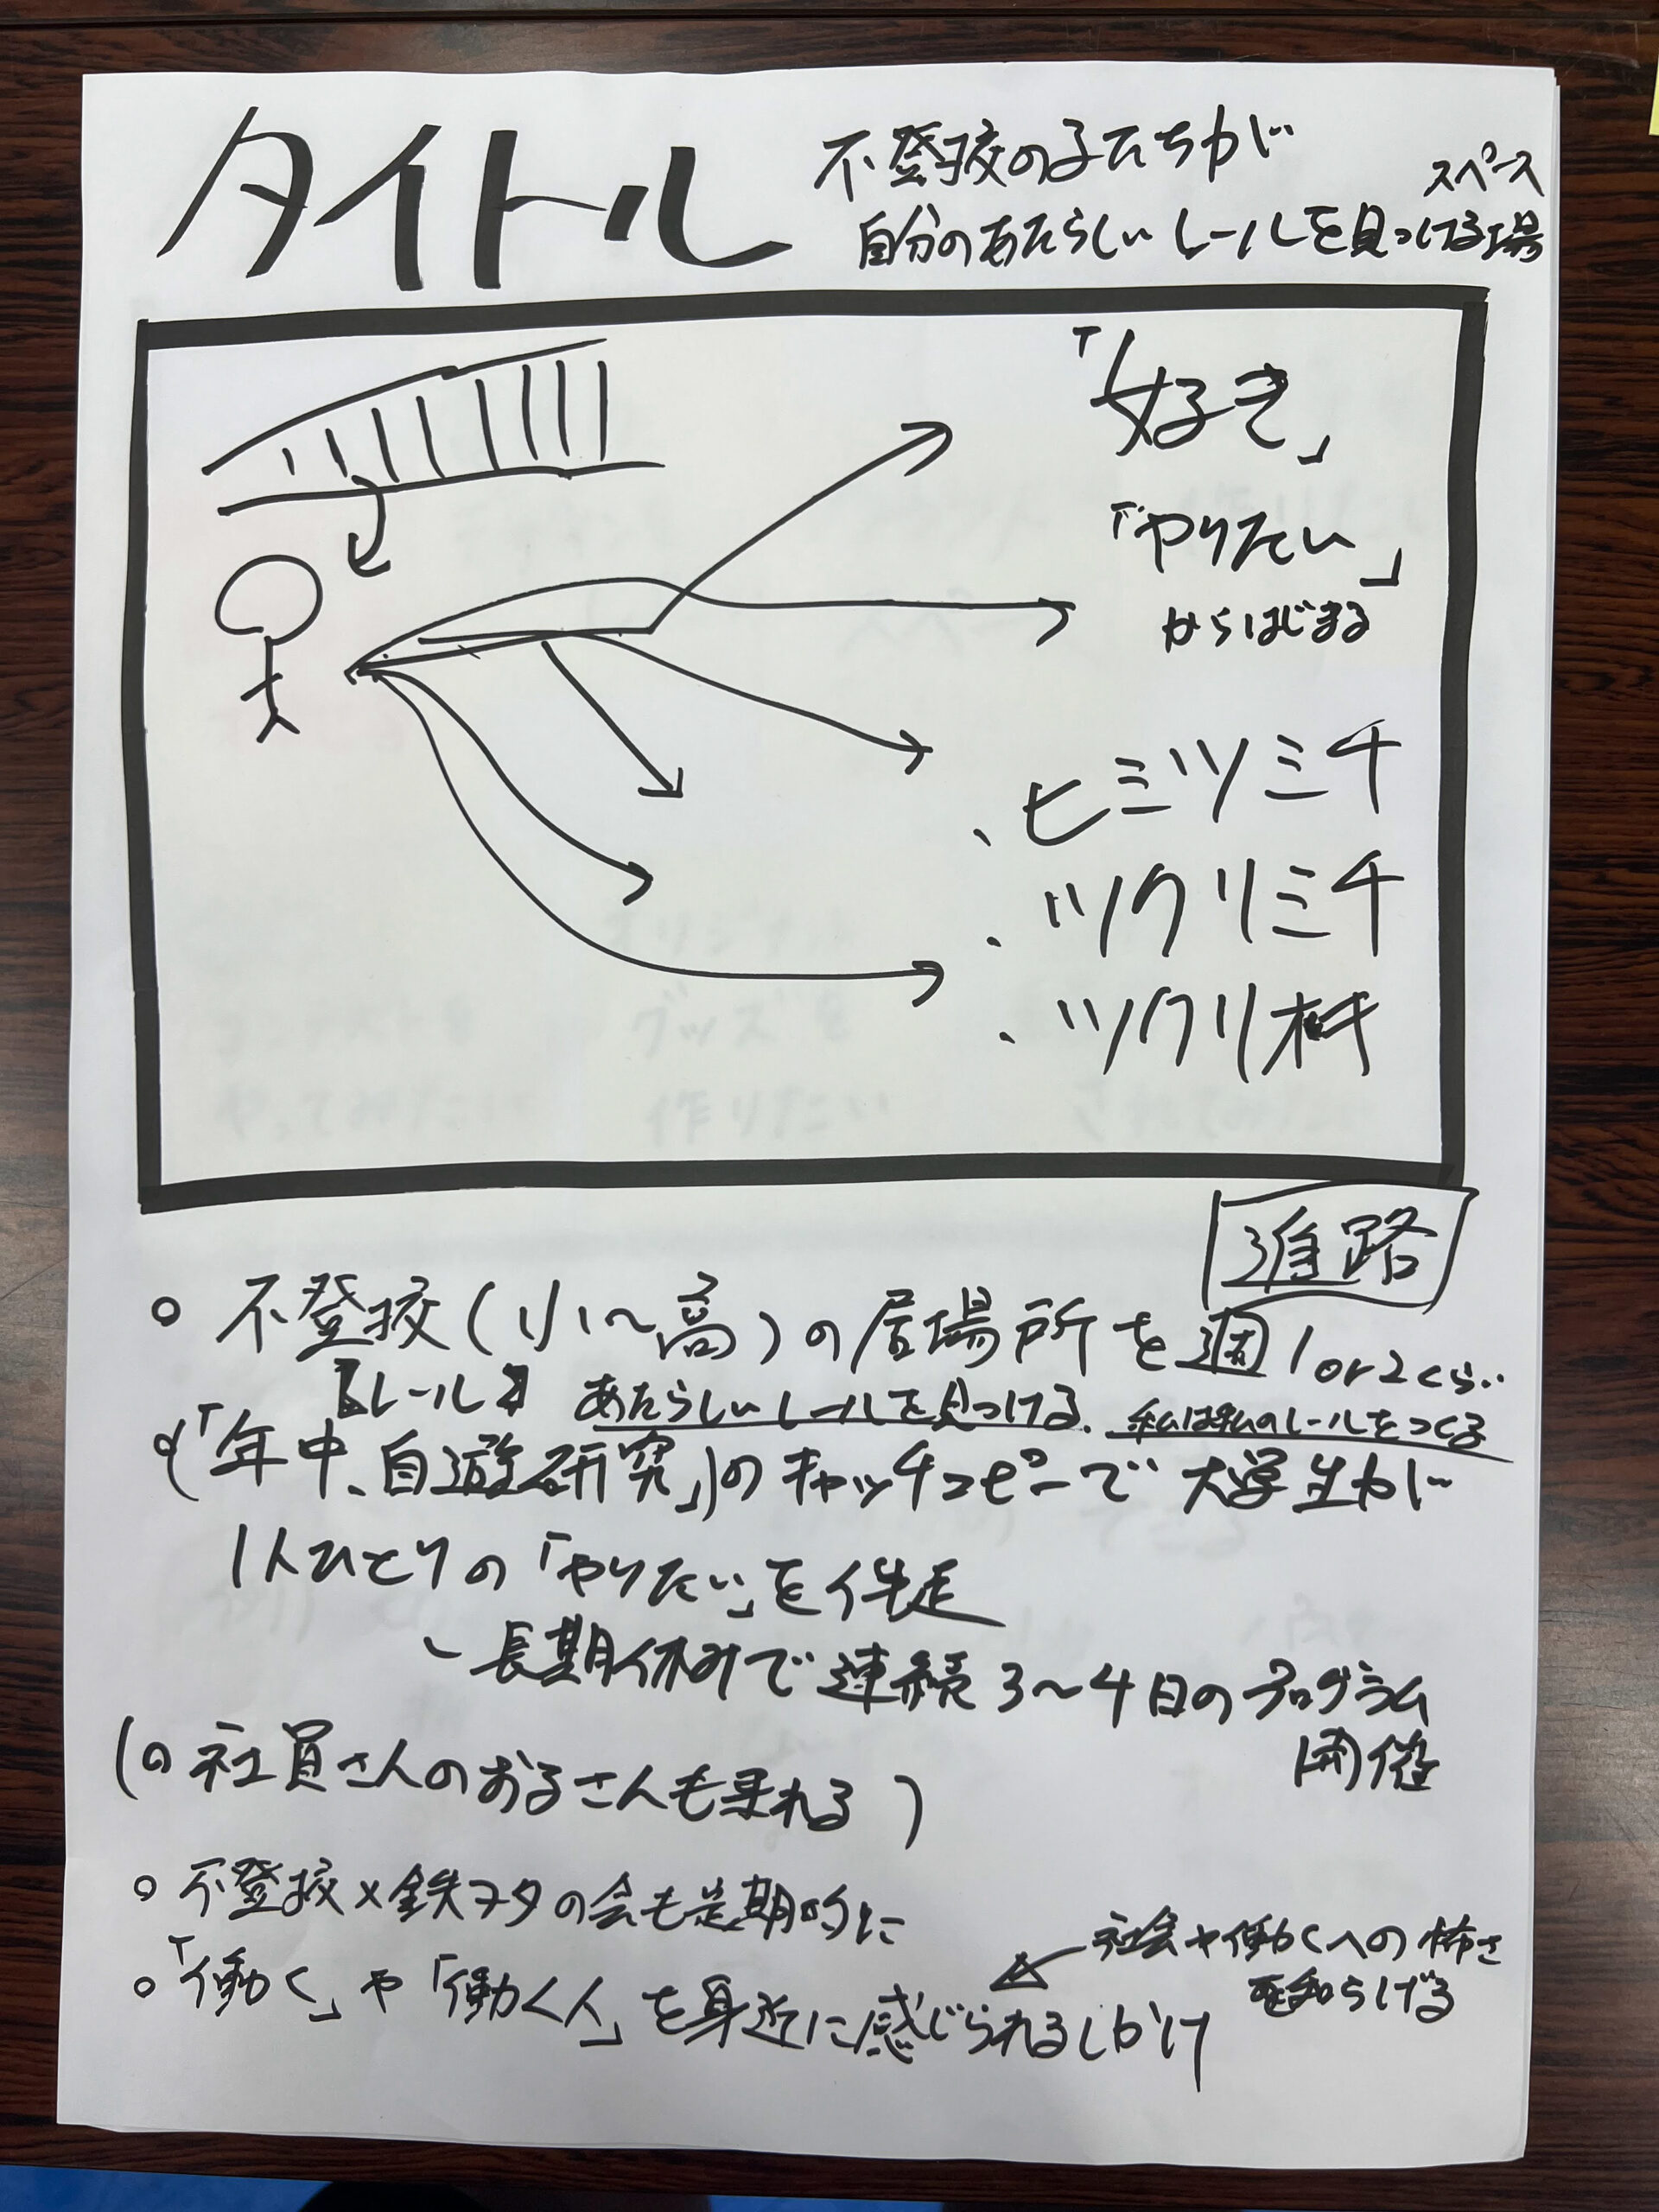 タイトル
不登校の子たちが
スペース
自分のあたらしいレールを見つける場
「好き」
「やりたい」
からはじまる
、ヒミツミチ
、ツクリミチ
、ツクリ
進路
○ 不登校(小〜高)の居場所を週1or2くらい
【レール】 あたらしいレールを見つける、私は私のレールをつくる
○(「年中、自遊研究」)のキャッチコピーで 大学生が
1人ひとりの「やりたい」を伴走
- 長期休みで連続3〜4日のプログラム
開催
(○ 社員さんのお子さんも乗れる)
○ 不登校×鉄ヲタの会も定期的に
○「働く」や「働く人」を身近に感じられるしかけ
← 社会や働くへの怖さ
を和らげる